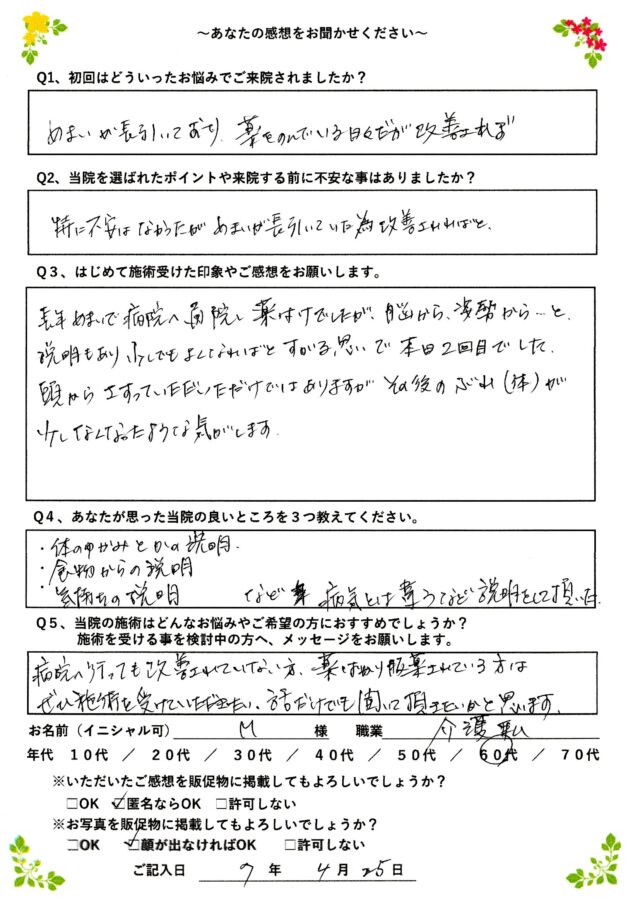 ～あなたの感想をお聞かせください～
Q1、初回はどういったお悩みでご来院されましたか？
めまいが長引いており、薬をのんでいる日々だが改善されれば
Q2、当院を選ばれたポイントや来院する前に不安な事はありましたか？
特に不安はなかったが めまいが長引いていた為改善されればと、
Q３、はじめて施術受けた印象やご感想をお願いします。
長年めまいで病院へ通院し薬はけでしたが、脳から、姿勢から…と、
説明もあり少しでもよくなればと すがる思いで 本日2回目でした。
頭から さすっていただいただけではありますが その後の ぶれ（体）が
少しなくなったような気がします.
Q４、あなたが思った当院の良いところを３つ教えてください。
・体のゆがみとかの説明.
・食物からの説明
・気持ちの説明 など 病気とは違うなど説明をして頂いた.
Q５、当院の施術はどんなお悩みやご希望の方におすすめでしょうか？
施術を受ける事を検討中の方へ、メッセージをお願いします。
病院へ行っても改善されていない方、薬ばかり服薬されている方は
ぜひ施術を受けていただきたい、話だけでも聞いて頂きたいかと思います.
お名前（イニシャル可） M 様 職業 介護
年代 １０代 ／ ２０代 ／ ３０代 ／ ４０代 ／ ５０代 ／ ６０代 ／ ７０代
※いただいたご感想を販促物に掲載してもよろしいでしょうか？
□OK ☑匿名ならOK □許可しない
※お写真を販促物に掲載してもよろしいでしょうか？
□OK ☑顔が出なければOK □許可しない
ご記入日 7 年 4 月 25 日